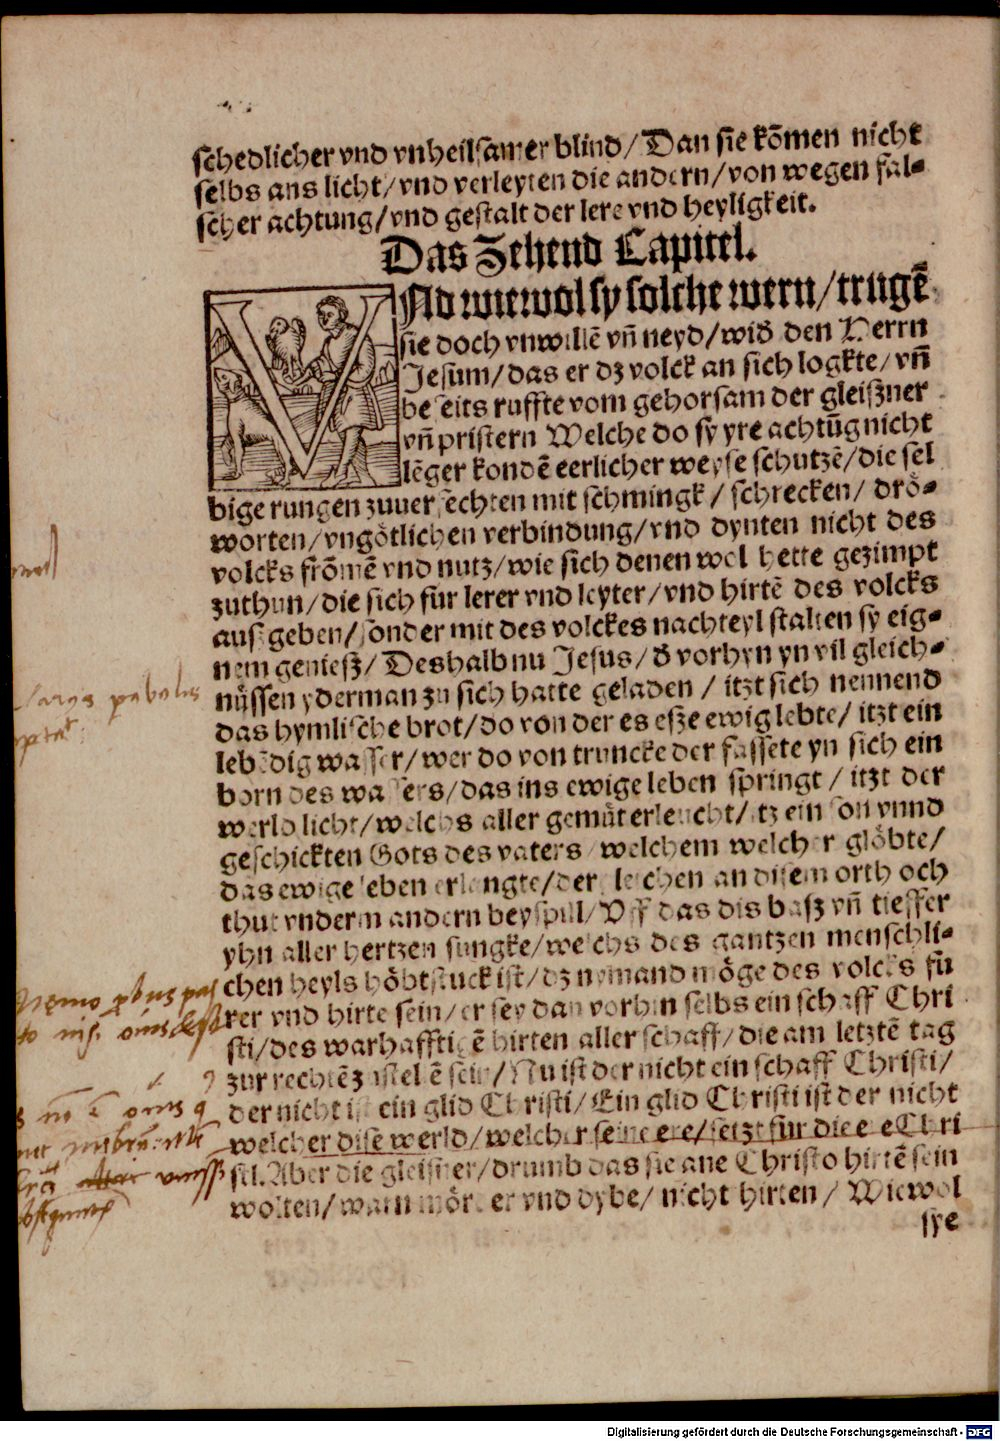 schedlicher vnd vnheilsamer blind/ Dan sie kōmen nicht
selbs ans licht/ vnd verleyten die andern/ von wegen fal⸗
scher achtung/ vnd gestalt der lere vnd heyligkeit.
Das Zehend Capitel.
VNd wiewol sy solche wern/ trugē
sie doch vnwillē vn̄ neyd/ wid̕ den Herrn
Jesum/ das er dz volck an sich logkte/ vn̄
beseits ruffte vom gehorsam der gleißner
vn̄ pristern Welche do sy yre achtūg nicht
lēger kondē eerlicher weyse schutzē/ die sel
bige rungen zuuerfechten mit schmingk/ schrecken/ drö⸗
worten/ vngötlichen verbindung/ vnd dynten nicht des
volcks frōmē vnd nutz/ wie sich denen wol hette gezimpt
zuthun/ die sich fur lerer vnd leyter/ vnd hirtē des volcks
ausgeben/ sonder mit des volckes nachteyl stalten sy eig⸗
nem genieß/ Deshalb nu Jesus/ d̕ vorhyn yn vil gleich⸗
nüssen yderman zu sich hatte geladen/ itzt sich nennend
das hymlische brot/ do von der es esze ewig lebte/ itzt ein
lebēdig wasser/ wer do von truncke der fassete yn sich ein
born des wassers/ das ins ewige leben springt/ itzt der
werld licht/ welchs aller gemüt erleucht/ itz ein son vnnd
geschickten Gots des vaters/ welchem welcher glöbte/
das ewige leben erlangte/ der leichen an disem orth och
thut vnderm andern beyspill/ Vff das dis baß vn̄ tieffer
yhn aller hertzen sungke/ welchs des gantzen menschli⸗
chen heyls höbtstuck ist/ dz nymand möge des volcks fü
rer vnd hirte sein/ er sey dan vorhin selbs ein schaff Chri
sti/ des warhafftigē hirten aller schaff/ die am letztē tag
zur rechtē zustelē sein/ Nu ist der nicht ein schaff Christi/
der nicht ist ein glid Christi/ Ein glid Christi ist der nicht
welcher dise werld/ welcher seine ere/ setzt fur die ere Chri
sti. Aber die gleisner/ drumb das sie ane Christo hirtē sein
wolten/ warn mörder vnd dybe/ nicht hirten/ Wiewol
sye
Digitalisierung gefördert durch die Deutsche Forschungsgemeinschaft - DFG